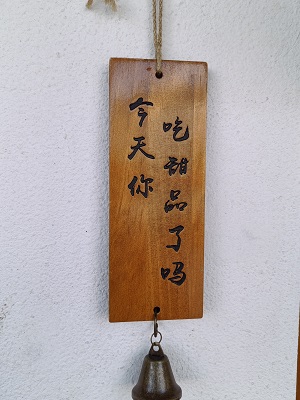 今天你
吃甜品了吗